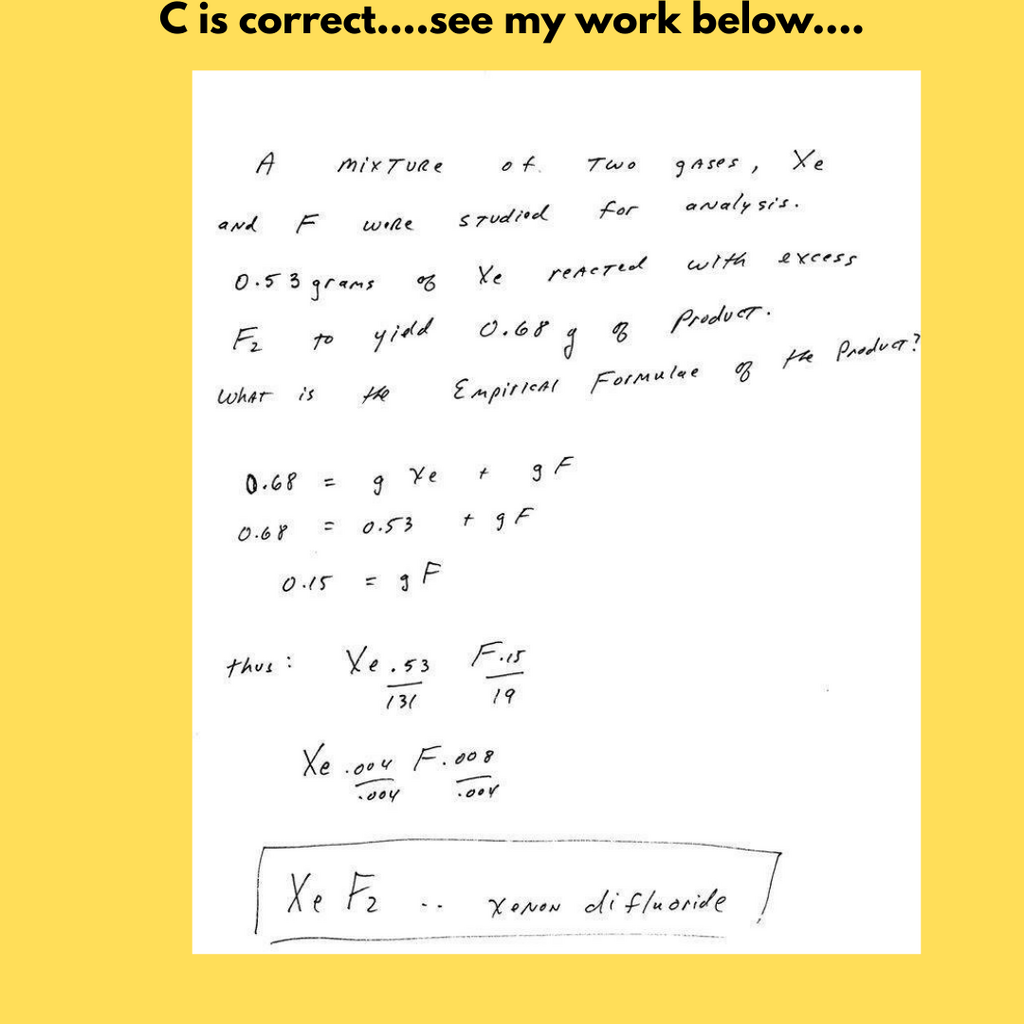 C is correct....see my work below....
A mixture of two gases, Xe
and F were studied for analysis.
0.53 grams of Xe reacted with excess
F2 to yield 0.68 g of product.
What is the Empirical Formulae of the Product?
0.68 = g Xe + g F
0.68 = 0.53 + g F
0.15 = g F
thus: Xe .53 F .15
131 19
Xe .004 F .008
.004 .004
Xe F2 .. xenon difluoride